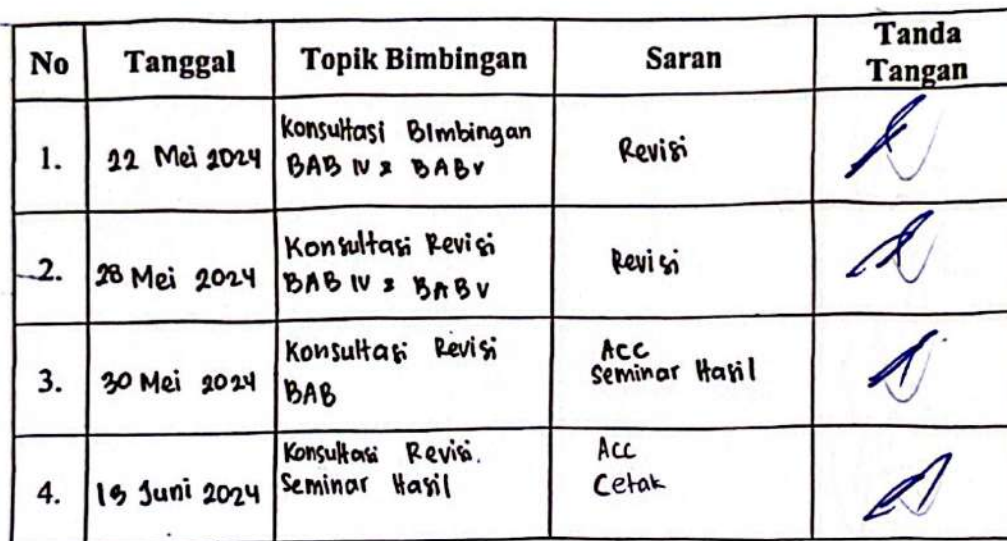 No Tanggal Topik Bimbingan Saran Tanda
Tangan
1. 22 Mei 2024 Konsultasi Bimbingan Revisi
BAB IV & BAB V
2. 28 Mei 2024 Konsultasi Revisi Revisi
BAB IV & BAB V
3. 30 Mei 2024 Konsultasi Revisi ACC
BAB Seminar Hasil
4. Juni 2024 Konsultasi Revisi. Acc
Seminar Hasil Cetak